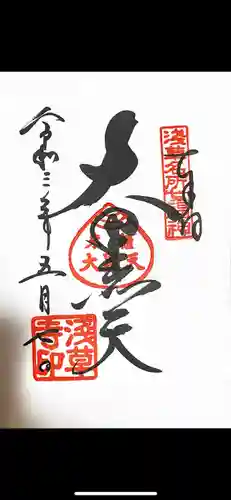 奉拝
浅草名所七福神
大黒天
令和三年五月七日
浅草
寺印